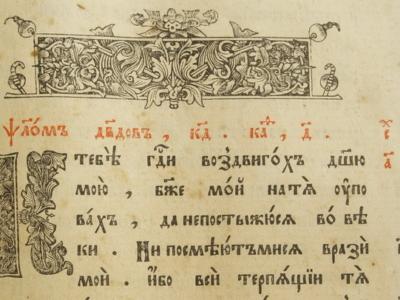 Ѱло́мъ дв҃довъ , к҃д . ка҃ѳ , д҃ .
К
тебѣ гд҇и воздвиго́хъ дш҃ю
мою̀ , бж҃е мо́й на тѧ̀ ѹ҆пო
ва́хъ , да непостыжꙋ́сѧ во вѣ́
ки . Ни посмѣю́тъмисѧ вразѝ
моѝ . и҆́бо всѝ терпѧ́щїи тѧ̀